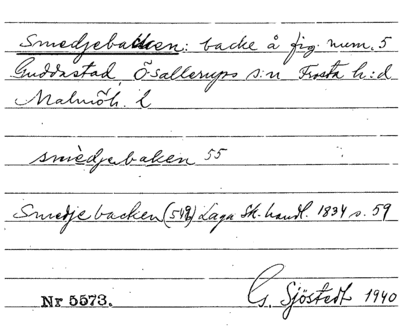 Smedjebacken: backe å fig. num. 5
Guddastad, Ö. Sallerups s:n Frosta h:d
Malmöh. l
smèdjebaken 55
Smedjebacken (548) Laga Sk. handl. 1834 s. 59
Nr 5573. G. Sjöstedt 1940